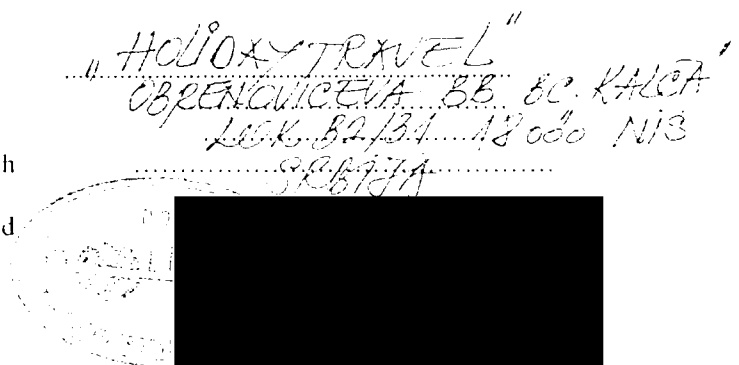 „HOLIDAY TRAVEL"
OBRENOVIĆEVA BB BC. KALČA"
LOK. B2/31 18000 NIŠ
h
SRBIJA
d